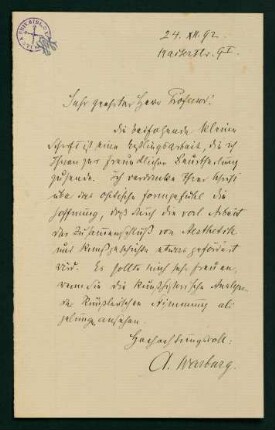 24. XII. 92.
Sehr geehrter Herr Professor!
die beifolgende kleine
Schrift ist eine Erstlingsarbeit, die ich
Ihnen zur freundlichen Beurtheilung
zusende. Ich verdanke Ihrer Schrift
über das optische Formgefühl die
Hoffnung, daß durch die vorl. Arbeit
der Zusammenschluß von Aesthetik
und Kunstgeschichte etwas gefördert
wird. Es sollte mich sehr freuen,
wenn Sie die kunsthistorische Analyse
der künstlerischen Stimmung als
gelungen ansehen.
Hochachtungsvoll:
A. Warburg.